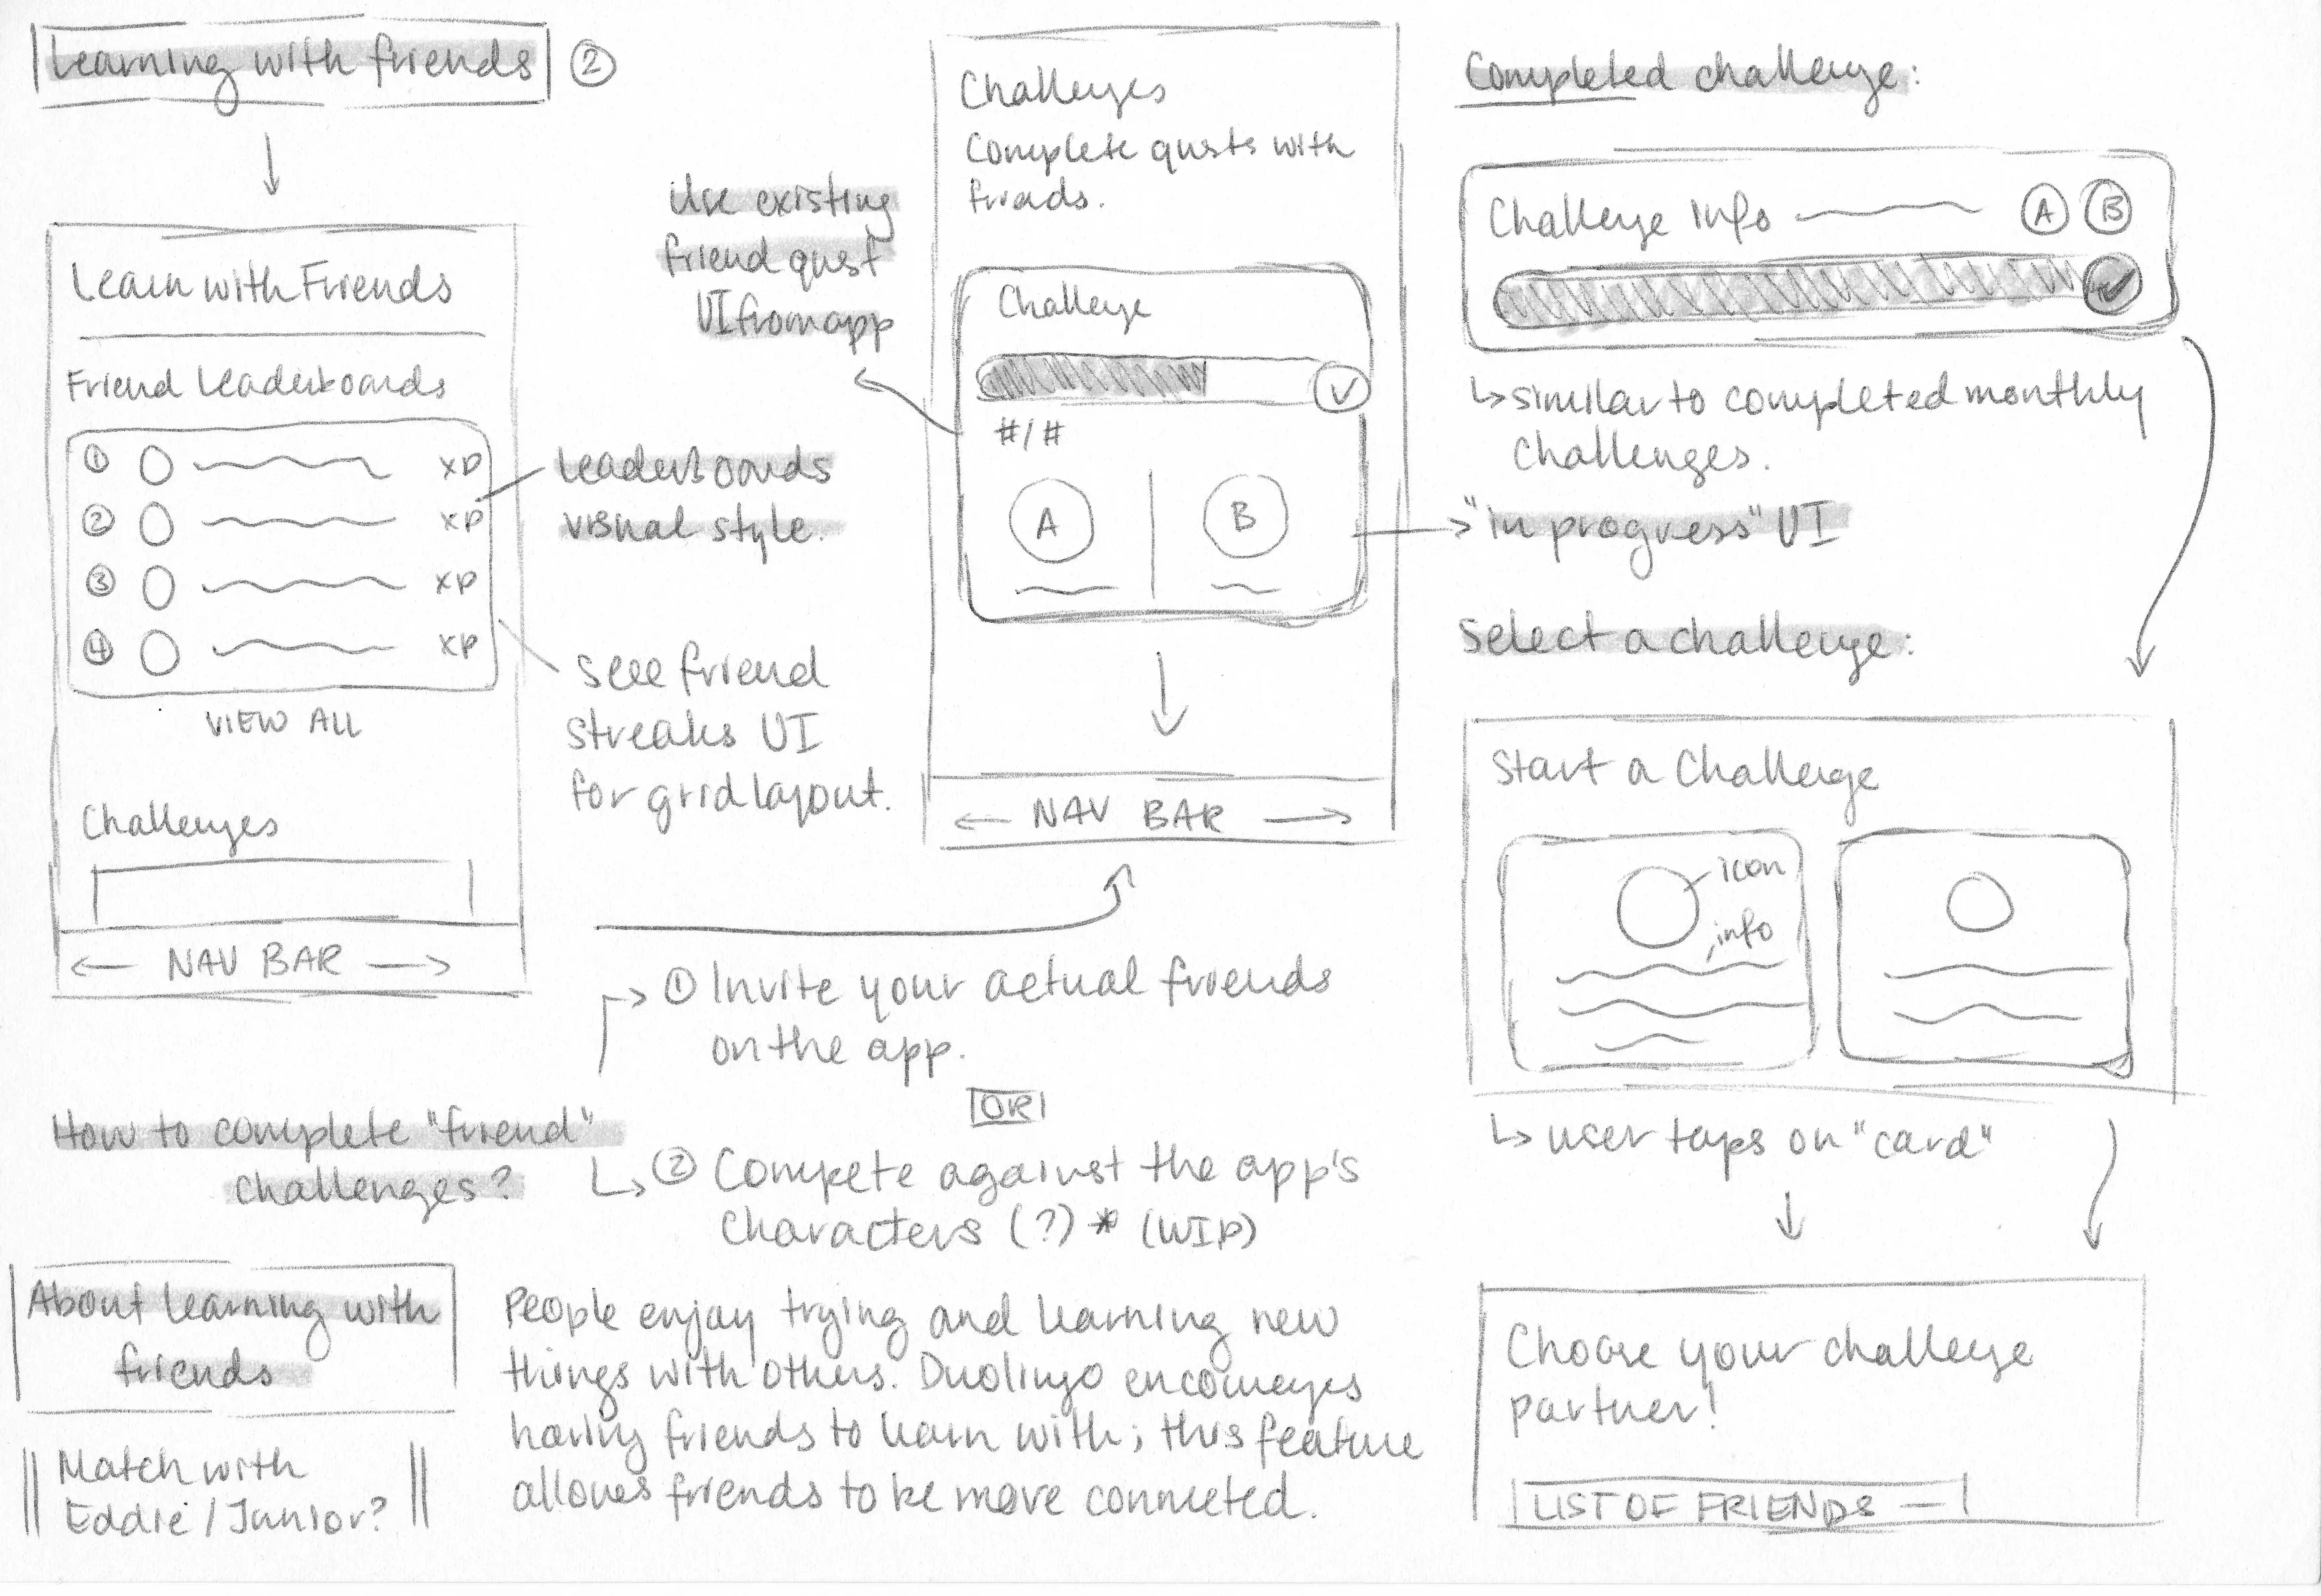 Learning with friends ②
Learn with Friends
Friend Leaderboards
① XP
② XP
③ XP
④ XP
VIEW ALL
Challenges
← NAV BAR →
Leaderboards
visual style.
see friend
streaks UI
for grid layout.
Use existing
friend quest
UI from app
Challenges
Complete quests with
friends.
Challenge
#/#
A B
← NAV BAR →
Completed challenge:
Challenge info A B
↳ similar to completed monthly
challenges.
"in progress" UI
Select a challenge:
Start a Challenge
icon
info
↳ user taps on "card"
Choose your challenge
partner!
LIST OF FRIENDS —
How to complete "friend"
challenges?
① Invite your actual friends
on the app.
OR
② Compete against the app's
characters (?) * (WIP)
About learning with
friends
Match with
Eddie / Junior?
People enjoy trying and learning new
things with others. Duolingo encourages
having friends to learn with; this feature
allows friends to be more connected.